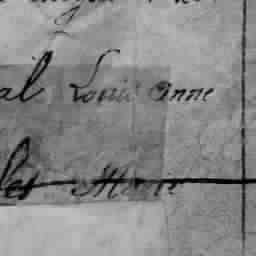 al Louis Anne
les Marie